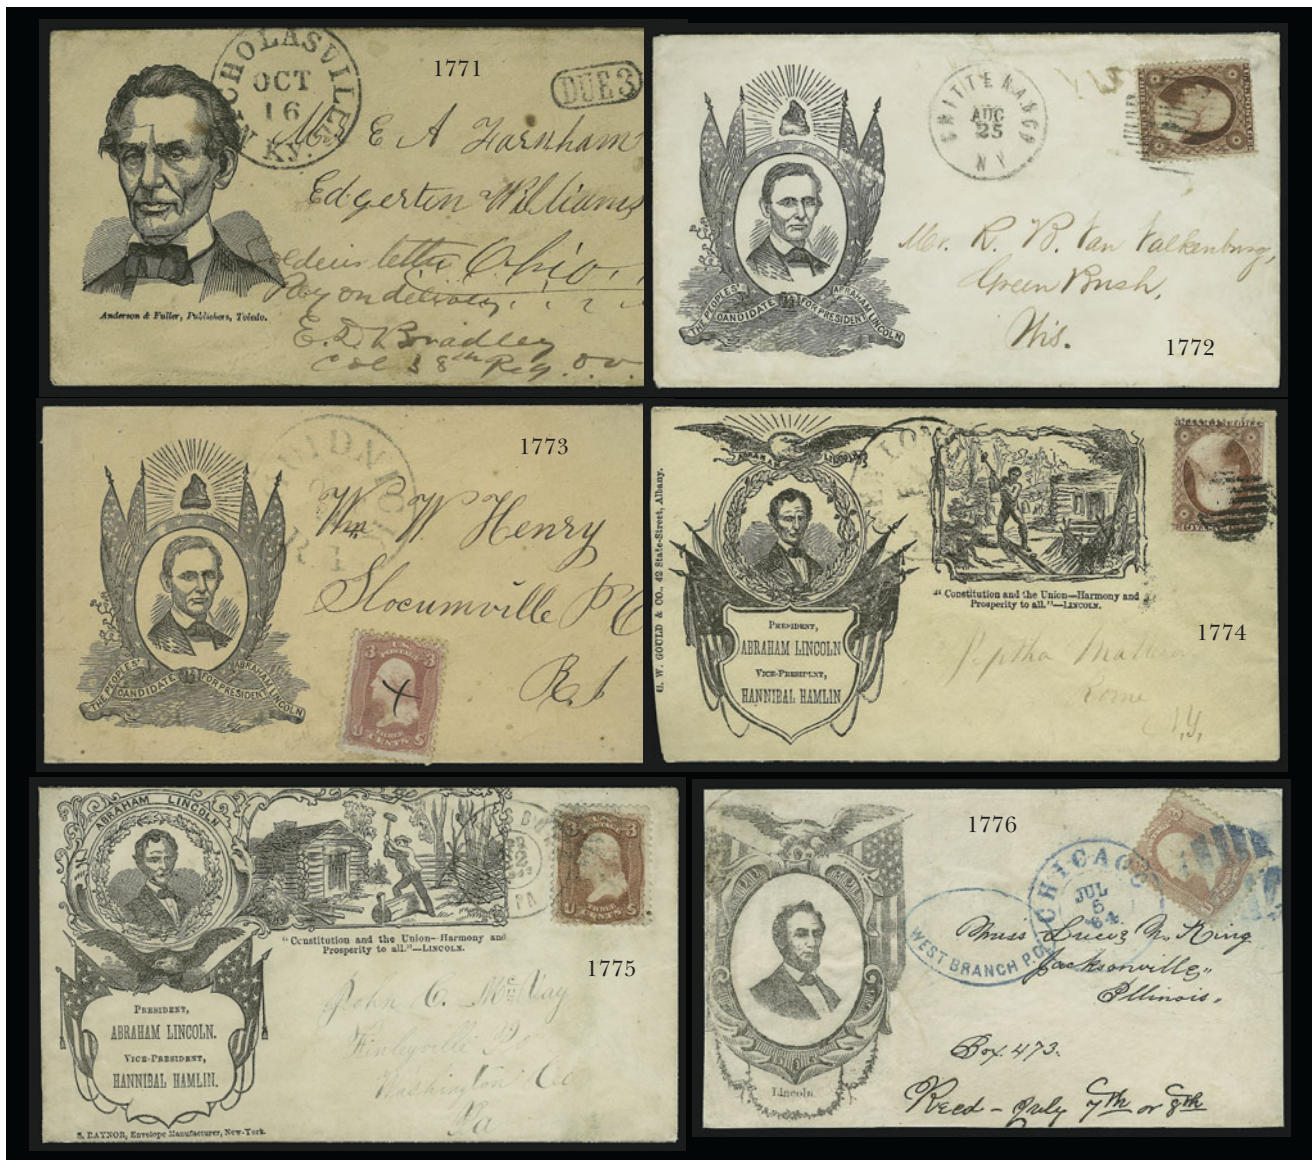 1771
NICHOLASVILLE
OCT
16
KY.
DUE 3
E A Farnham
Edgerton Williams
Soldiers letter Ohio.
Pay on delivery.
E. D. Bradley
Col 38th Reg. O.V.
Anderson & Fuller, Publishers, Toledo.
1772
CHITTENANGO
AUG
25
N Y
THE PEOPLES' CANDIDATE FOR PRESIDENT ABRAHAM LINCOLN
Mr. R. B. Van Valkenburg,
Green Bush,
Wis.
1773
R I
Wm W Henry
Slocumville P O
R I
THE PEOPLES' CANDIDATE FOR PRESIDENT ABRAHAM LINCOLN
3 3
U THREE CENTS S
1774
ABRAHAM LINCOLN
G. W. GOULD & CO., 42 State-Street, Albany.
"Constitution and the Union—Harmony and
Prosperity to all."—LINCOLN.
PRESIDENT,
ABRAHAM LINCOLN
VICE-PRESIDENT,
HANNIBAL HAMLIN
Rome
N.Y.
1775
ABRAHAM LINCOLN
PA
3 3
U THREE CENTS S
"Constitution and the Union—Harmony and
Prosperity to all."—LINCOLN.
PRESIDENT,
ABRAHAM LINCOLN.
VICE-PRESIDENT,
HANNIBAL HAMLIN.
John C. McVay
Finleyville P.O
Washington Co
Pa
S. RAYNOR, Envelope Manufacturer, New-York.
1776
CHICAGO
JUL
5
64
WEST BRANCH P.O.
Miss N. King
Jacksonville,
Illinois.
Box 473.
Lincoln.
Recd – July 7th or 8th